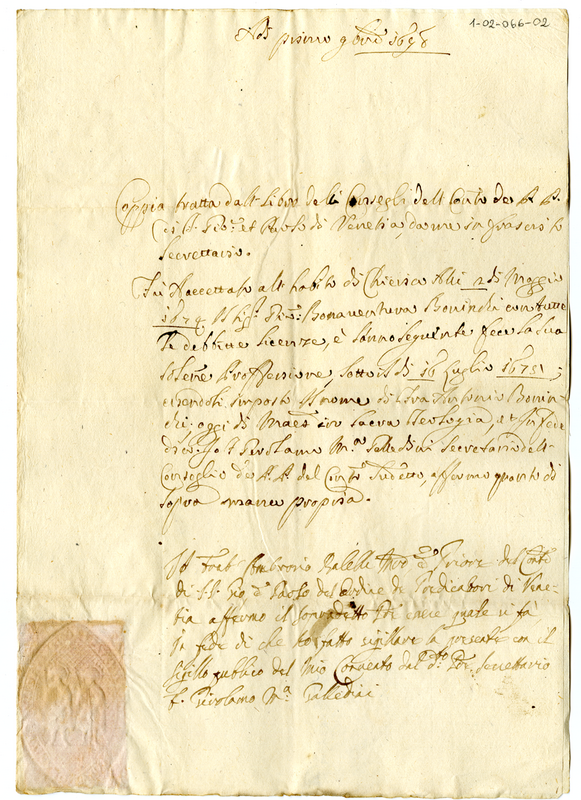 1-02-066-02
Adi primo 9bre 1698
Coppia tratta dall Libro delli Consegli dell Conto de P. P.
SS. Gio: et Paolo di Venetia, da me infrascrito
Secrettario.
Fu Accettato all habito di Chierico Alli 2 di Maggio
1674 Il Sig. Bonaventura Bonindri con tutte
le debbitte licenze, è l'anno seguente fece la sua
solene Proffessione, sotto il di 16 Luglio 1675;
essendoli imposto il nome di Fra Antonio Bonin-
dri: oggi di Maes: in Sacra Teologia, et In fede
di cio Io f. Girolamo Mª Galledini Secretario dell
Conseglio de P. P. del Conto sudetto, affermo quanto di
sopra mano propria.
Io Frat' Ambrosio Priore del Conto
di SS. Gio e Paolo del ordine de Predicatori di Vene-
tia affermo il sopradetto
In fede di che ho fatto sigillare la presente con il
sigillo publico del Mio Convento dal Secrettario
f. Girolamo Mª Galledini